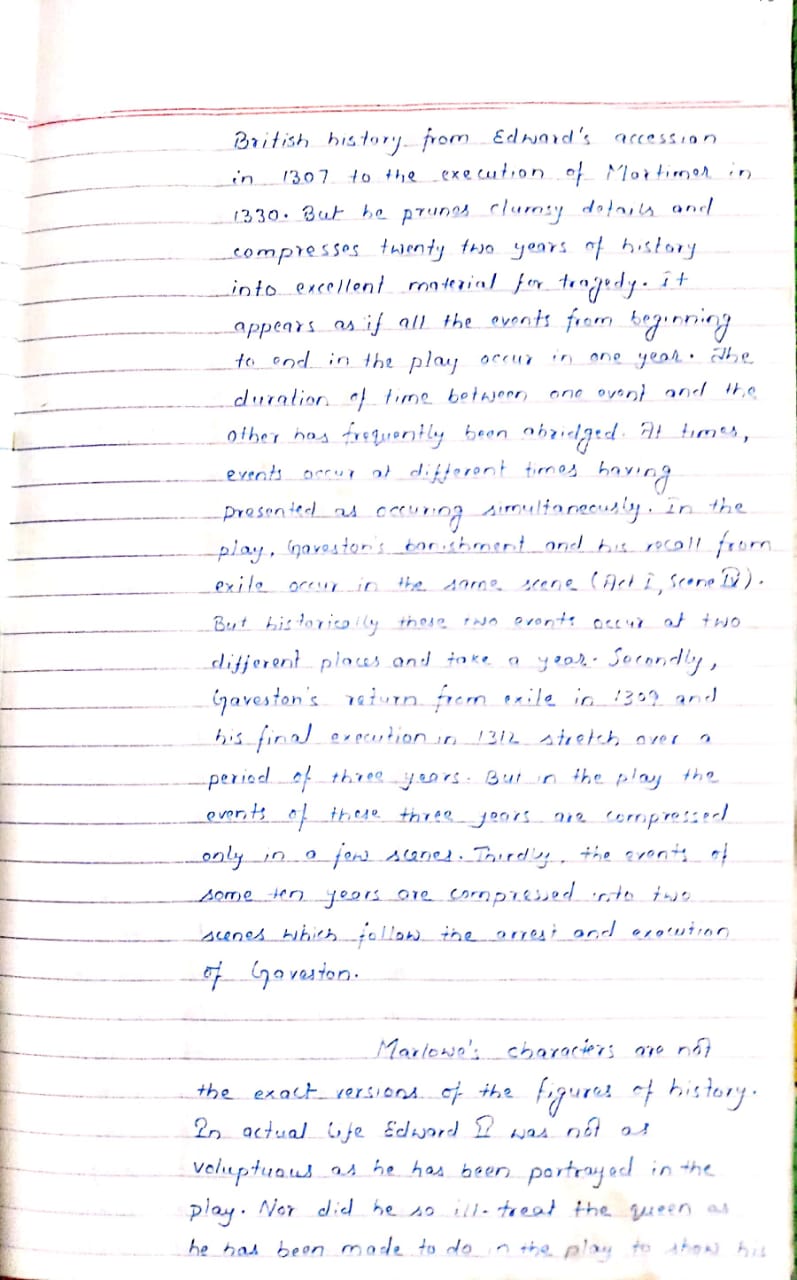 British history from Edward's accession
in 1307 to the execution of Mortimer in
1330. But he prunes clumsy details and
compresses twenty two years of history
into excellent material for tragedy. It
appears as if all the events from beginning
to end in the play occur in one year. The
duration of time between one event and the
other has frequently been abridged. At times,
events occur at different times having
presented as occuring simultaneously. In the
play, Gaveston's banishment and his recall from
exile occur in the same scene (Act I, Scene IV).
But historically these two events occur at two
different places and take a year. Secondly,
Gaveston's return from exile in 1309 and
his final execution in 1312 stretch over a
period of three years. But in the play the
events of these three years are compressed
only in a few scenes. Thirdly, the events of
some ten years are compressed into two
scenes which follow the arrest and execution
of Gaveston.
Marlowe's characters are not
the exact versions of the figures of history.
In actual life Edward II was not as
voluptuous as he has been portrayed in the
play. Nor did he so ill-treat the queen as
he has been made to do in the play to show his